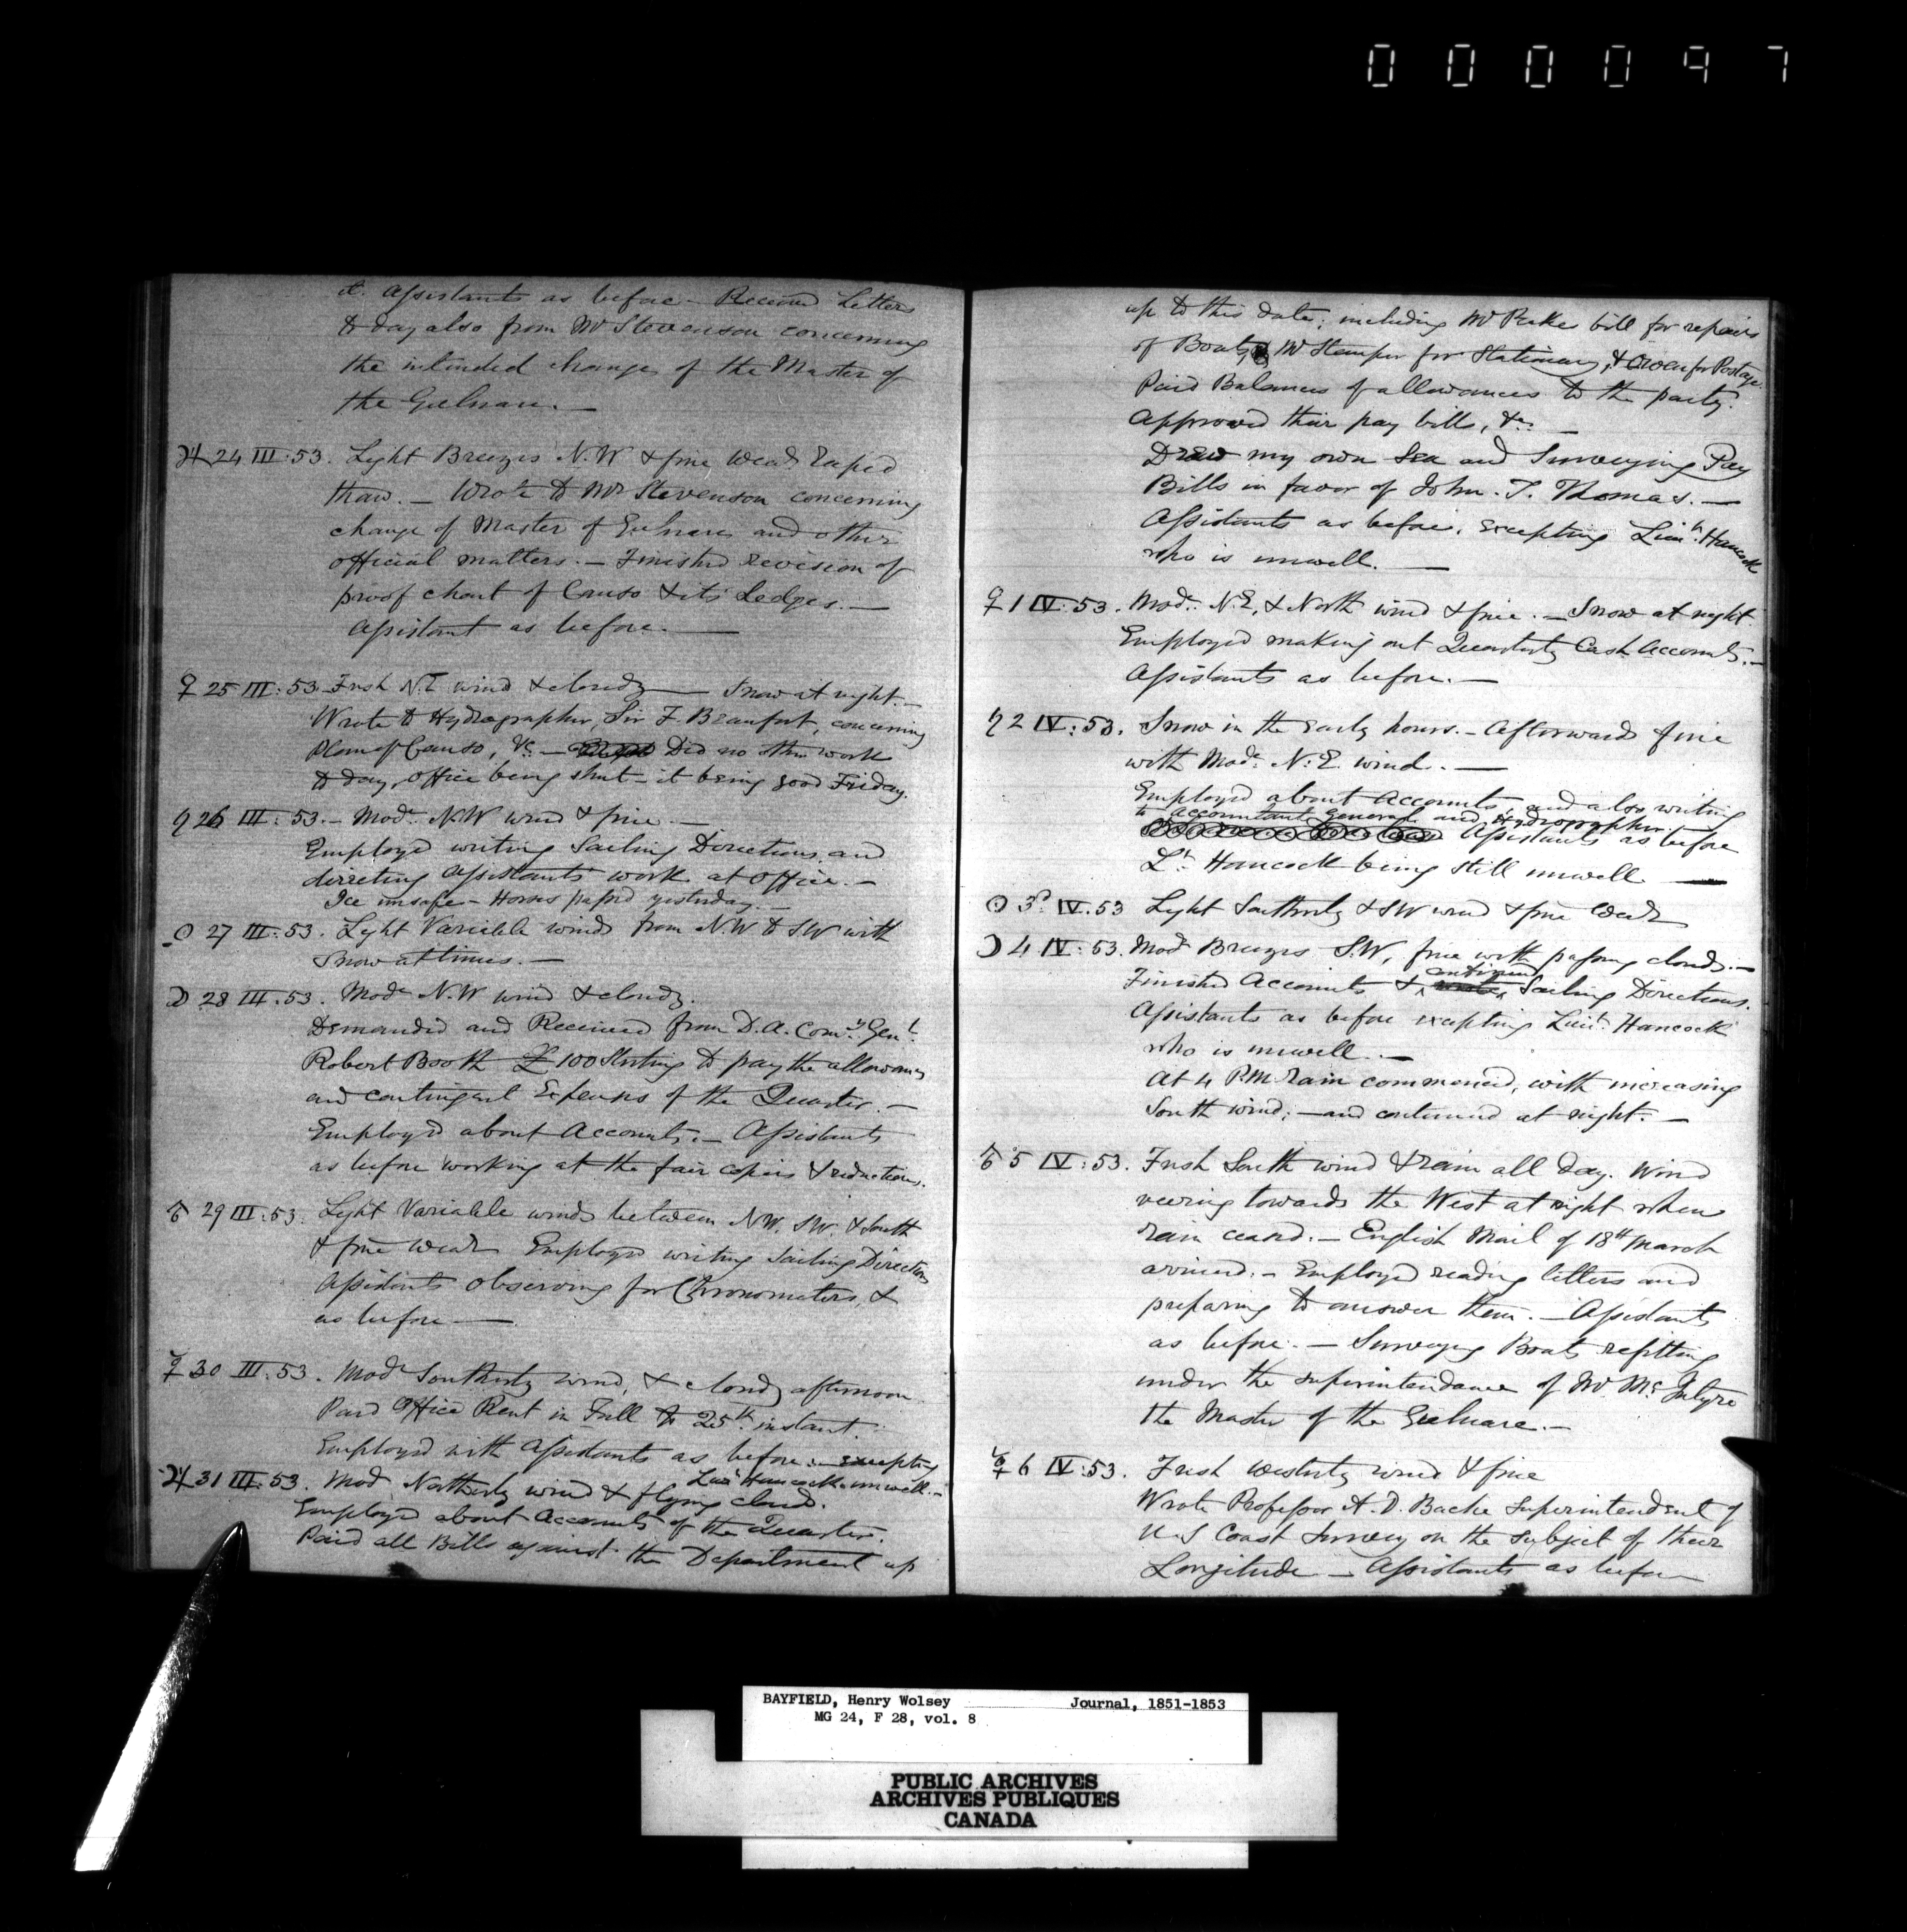 000097
it. Assistants as before – Received Letters
to day also from Mr Stevenson concerning
the intended change of the Master of
the Gulnare. –
♃ 24 III: 53. Light Breezes N.W & fine Weath rapid
thaw. – Wrote to Mr Stevenson concerning
change of Master of Gulnare and other
official matters. – Finished revision of
proof chart of Canso & its Ledges. –
Assistant as before. –
♀ 25 III: 53 – Fresh N.E wind & cloudy – Snow at night. –
Wrote to Hydrographer, Sir F. Beaufort, concerning
Plan of Canso, &c – Did no other work
to day, office being shut – it being good Friday.
♄ 26 III: 53. – Modr. N.W wind & fine. –
Employed writing Sailing Directions, and
directing Assistants work at Office. –
Ice unsafe – Horses passed yesterday. –
☉ 27 III: 53. Light Variable winds from N.W to S.W with
Snow at times. –
☽ 28 III. 53. Modr N.W wind & cloudy.
Demanded and Received from D. A. Comy. Genl.
Robert Booth £100 Sterting to pay the allowances
and contingent Expenses of the Quarter. –
Employed about Accounts. – Assistants
as before working at the fair copies & reductions.
♂ 29 III: 53. Light Variable winds between NW. SW. & South
& fine Weath Employed writing Sailing Directions
Assistants observing for Chronometers, &
as before –
☿ 30 III: 53. Modr Southerly wind, & cloudy afternoon
Paid Office Rent in Full to 25th instant.
Employed with Assistants as before: – excepting
Lieut Hancock unwell. –
♃ 31 III: 53. Mod Northerly wind & flying clouds.
Employed about Accounts of the Quarter.
Paid all Bills against the Department up
up to this date; including Mr Peake's bill for repairs
of Boats, Mr Stamper for Stationary, & Owen for Postage.
Paid Balances of allowances to the party.
Approved their pay bills, &c. –
Drew my own Sea and Surveying Pay
Bills in favor of John. T. Thomas. –
Assistants as before, excepting Lieut. Hancock
who is unwell. –
♀ 1 IV: 53. Modr. N.E, & North wind & fine. – Snow at night.
Employed making out Quarterly Cash Accounts. –
Assistants as before. –
♄ 2 IV: 53. Snow in the early hours. – Afterwards fine
with Modr. N.E. wind. –
Employed about Accounts, and also writing
to Accountant General and Hydrographer.
Assistants as before
Lt. Hancock being still unwell –
☉ 3d IV. 53 Light Southerly & SW wind & fine Weath
☽ 4 IV: 53. Modr Breezes S.W, fine with passing clouds. –
Finished Accounts & continued Sailing Directions.
Assistants as before excepting Lieut. Hancock
who is unwell. –
At 4 P.M. rain commenced, with increasing
South wind; – and continued at night. –
♂ 5 IV: 53. Fresh South wind & rain all day. Wind
veering towards the West at night when
rain ceased. – English Mail of 18th March
arrived. – Employed reading letters and
preparing to answer them. – Assistants
as before. – Surveying Boats refitting
under the superintendance of Mr McIntyre
the Master of the Gulnare. –
☿ 6 IV: 53. Fresh westerly wind & fine
Wrote Professor A. D. Bache Superintendent of
U.S Coast Survey on the subject of their
Longitude – Assistants as before
BAYFIELD, Henry Wolsey Journal, 1851-1853
MG 24, F 28, vol. 8
PUBLIC ARCHIVES
ARCHIVES PUBLIQUES
CANADA